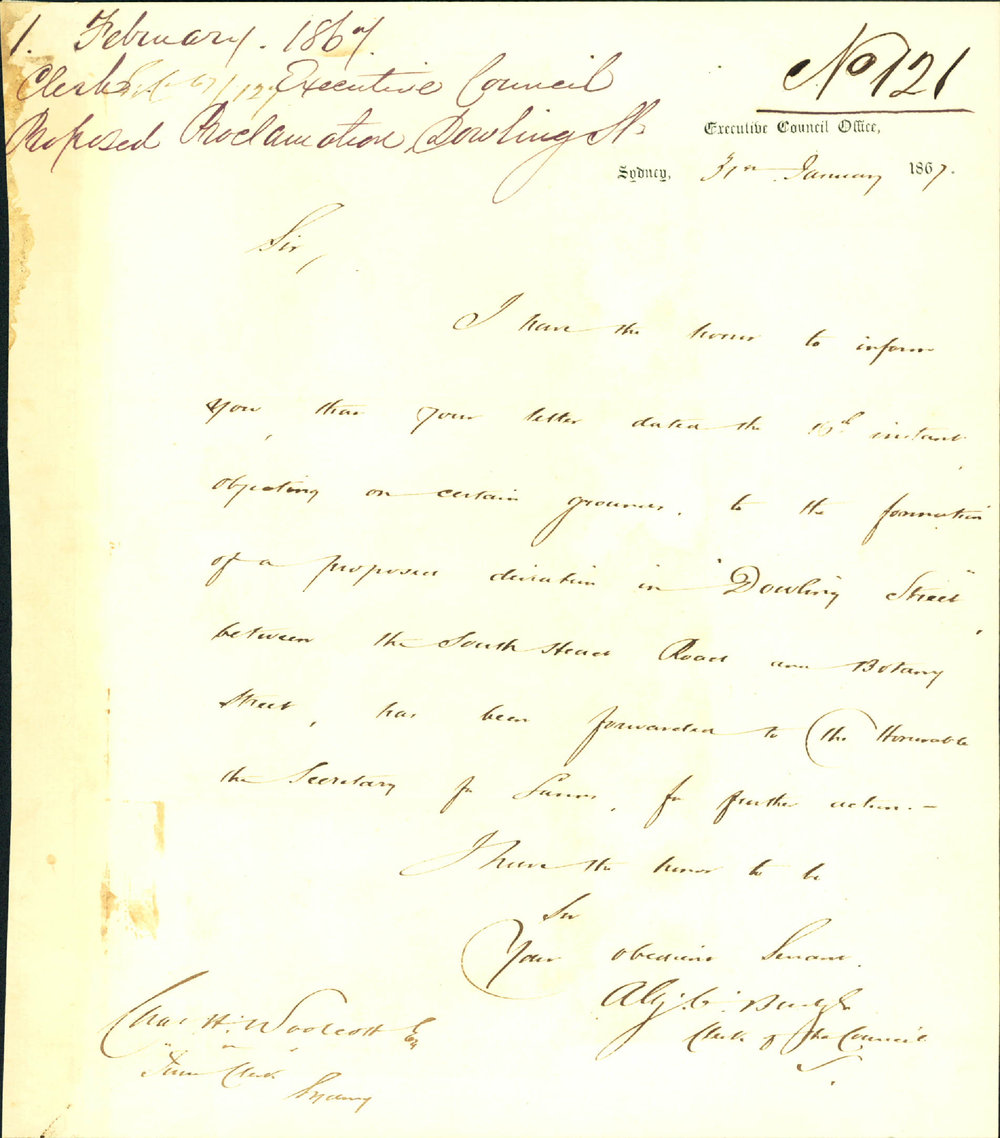 1. February. 1867.
Clerk Executive Council
Proposed Proclamation Dowling St.
No 121
Executive Council Office,
Sydney, 31st January 1867.
Sir,
I have the honor to inform
you, that your letter dated the instant
objecting on certain grounds, to the formation
of a proposed deviation in "Dowling Street"
between the South Head Road and Botany
Street, has been forwarded to the Honorable
the Secretary for Lands, for further action.—
I have the honor to be
Sir
Your obedient Servant.
Clerk of the Council
Chas H. Woolcott Esq
Town Clerk
Sydney